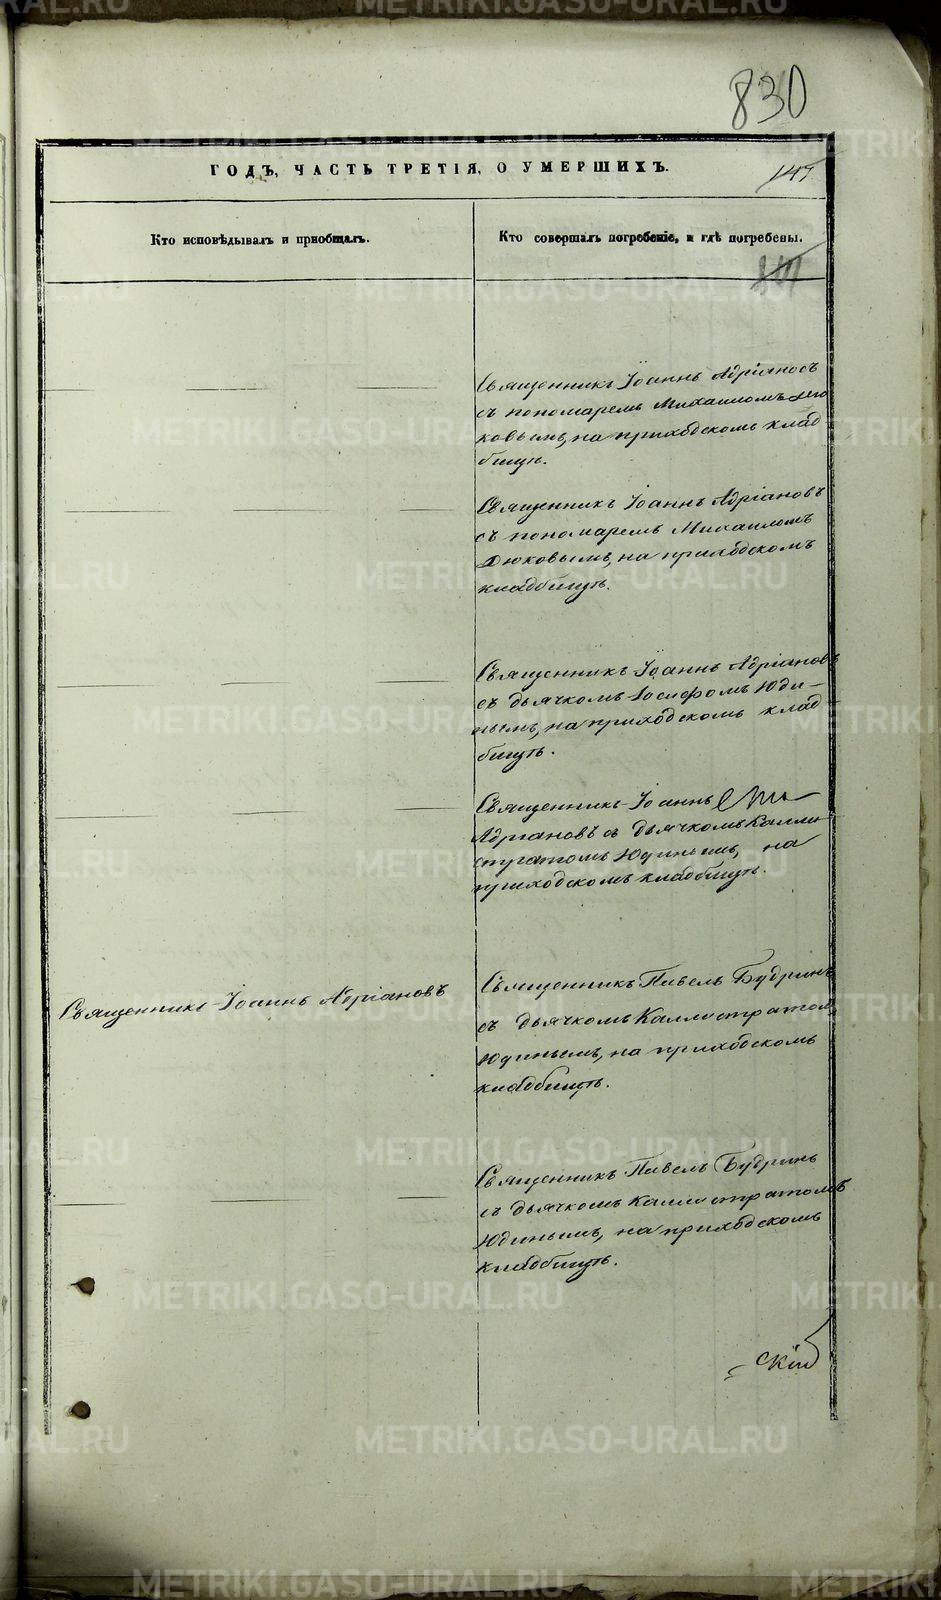 830
ГОДЪ, ЧАСТЬ ТРЕТІЯ, О УМЕРШИХЪ.
147
Кто исповѣдывалъ и пріобщалъ.
Кто совершалъ погребеніе, и гдѣ погребены.
Священникъ Іоаннъ Адріановъ
съ пономаремъ Михаиломъ Дю
ковымъ, на приходскомъ клад
бищѣ.
Священникъ Іоаннъ Адріановъ
съ пономаремъ Михаиломъ
Дюковымъ, на приходскомъ
кладбищѣ.
Священникъ Іоаннъ Адріановъ
съ дьячкомъ Іосифомъ Юди-
нымъ, на приходскомъ клад
бищѣ.
Священникъ Іоаннъ
Адріановъ съ дьячкомъ Калли
стратомъ Юдинымъ, на
приходскомъ кладбищѣ.
Священникъ Іоаннъ Адріановъ
Священникъ Павелъ Будринъ
съ дьячкомъ Каллистратомъ
Юдинымъ, на приходскомъ
кладбищѣ.
Священникъ Павелъ Будринъ
съ дьячкомъ Каллистратомъ
Юдинымъ, на приходскомъ
кладбищѣ.
METRIKI.GASO-URAL.RU